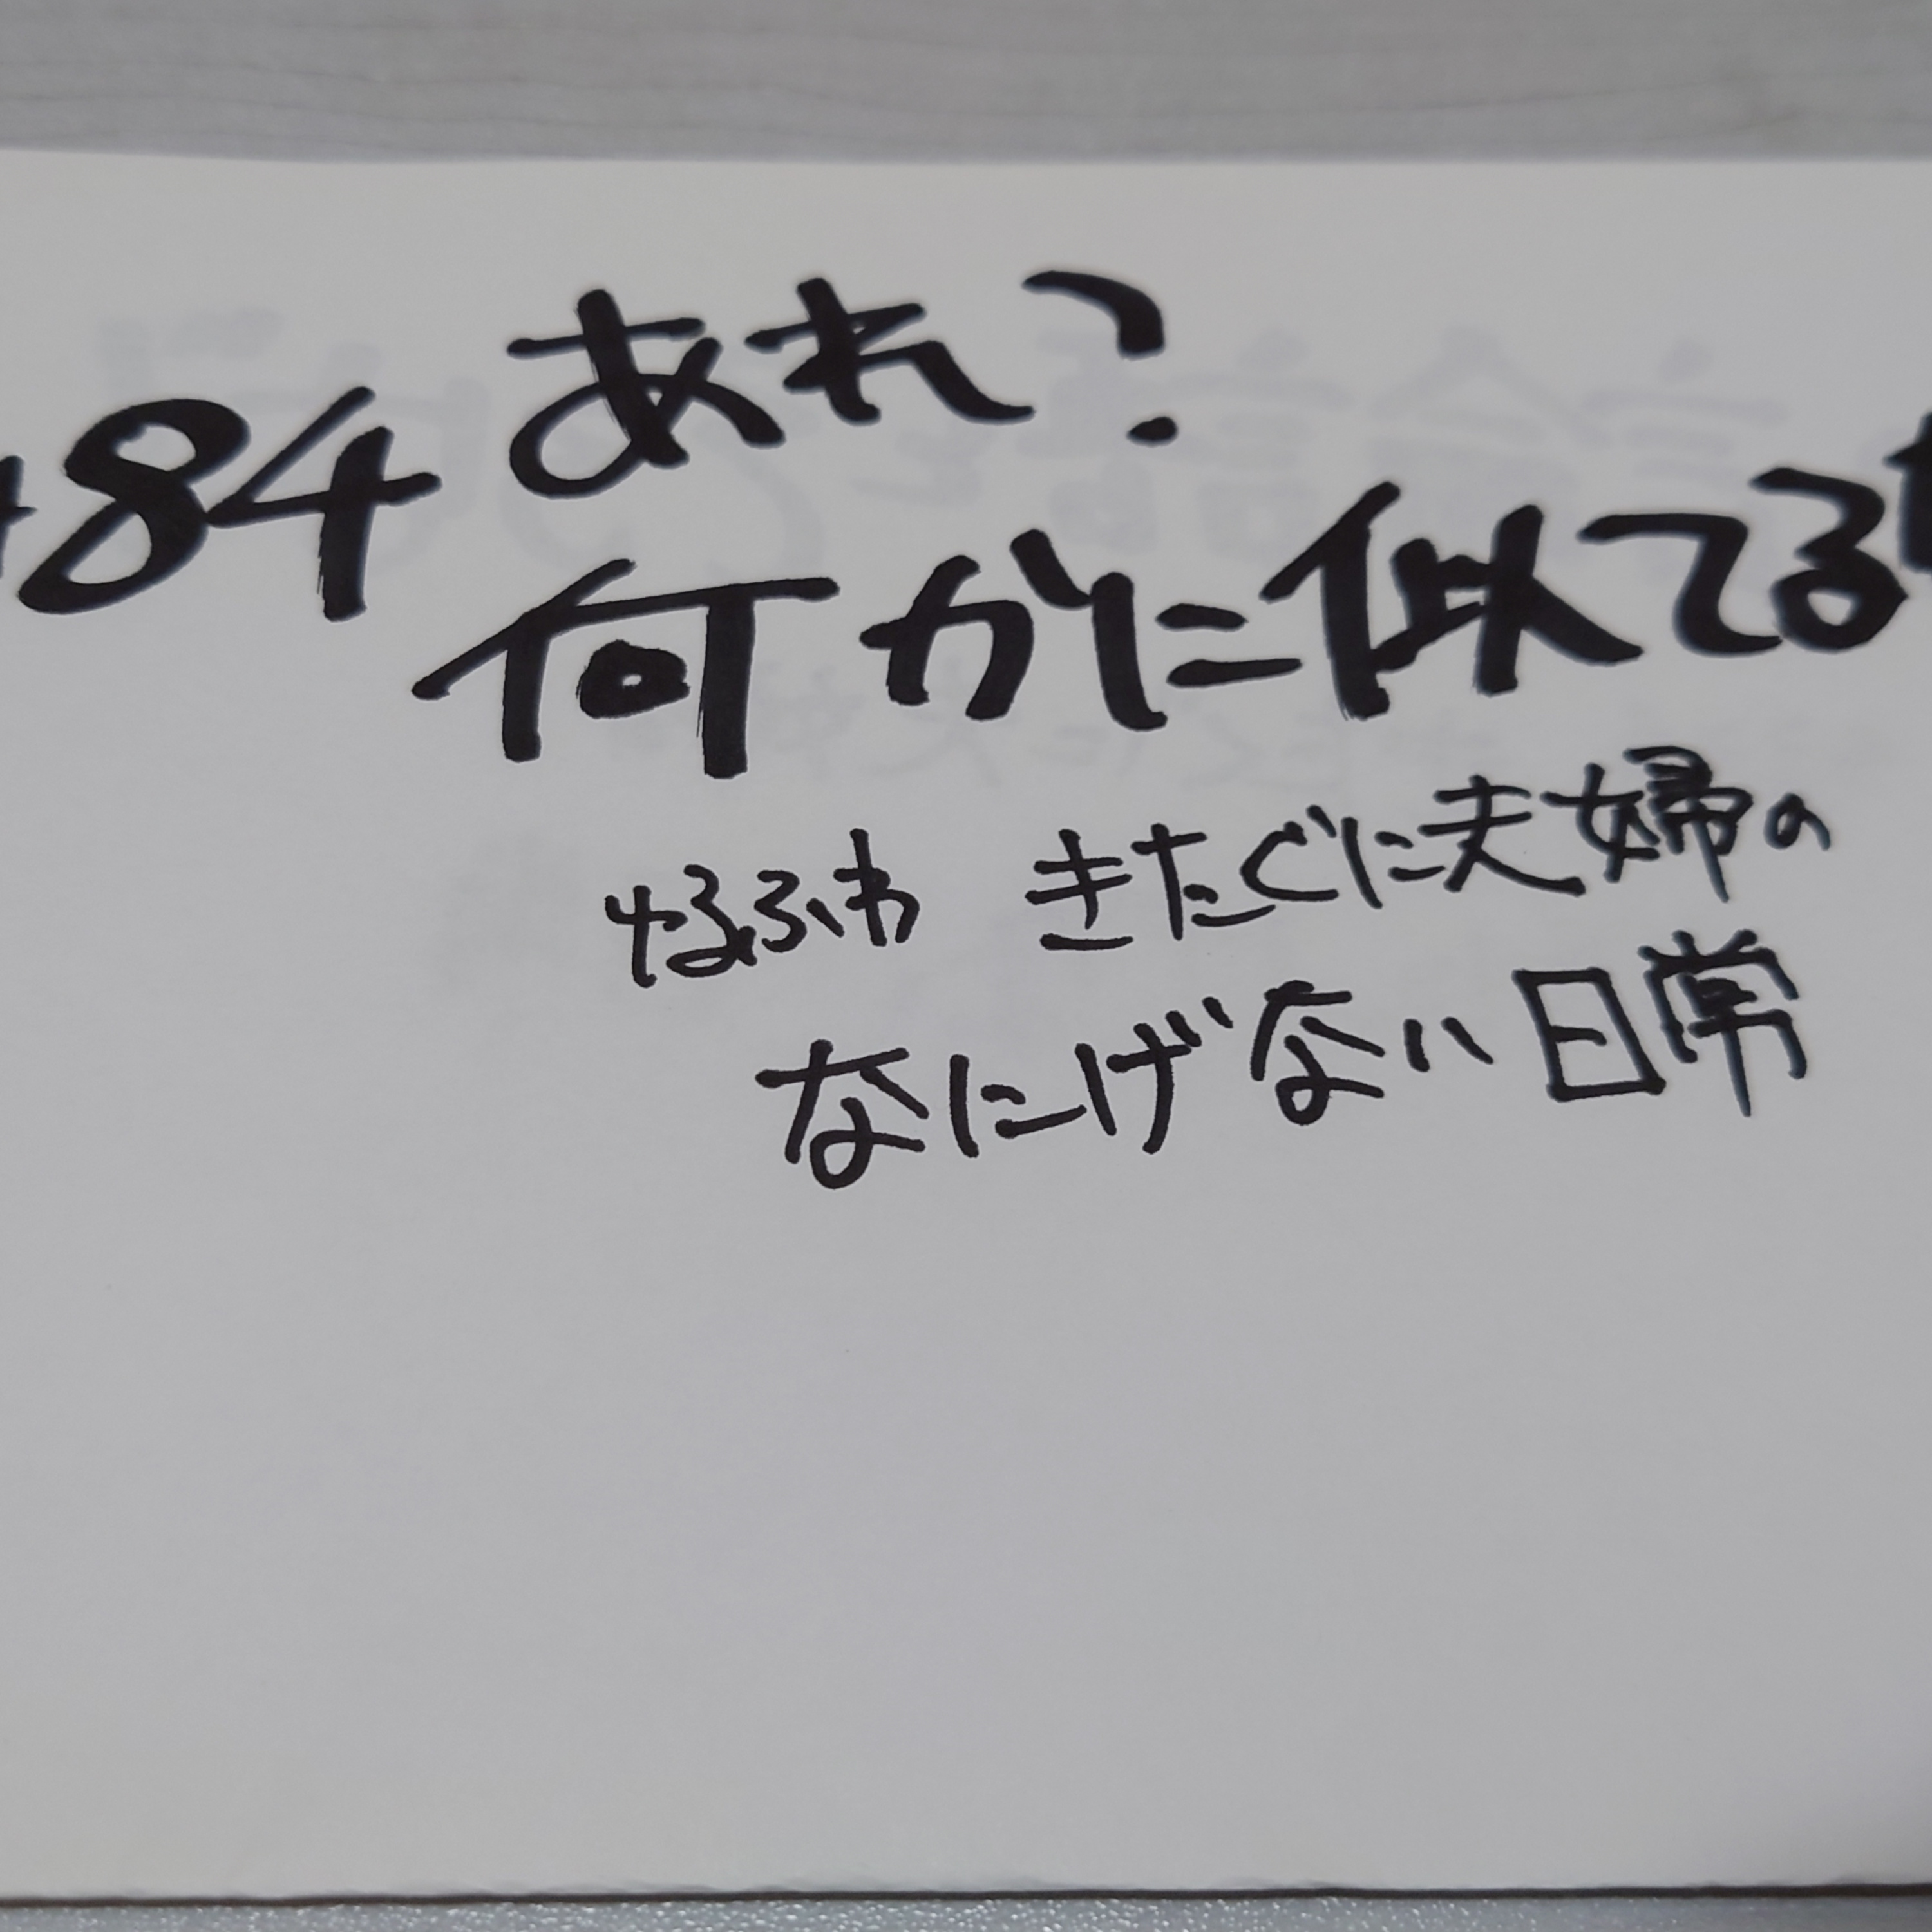 #84 あれ?
何かに似てる
ゆるふわ きたぐに夫婦の
なにげない日常